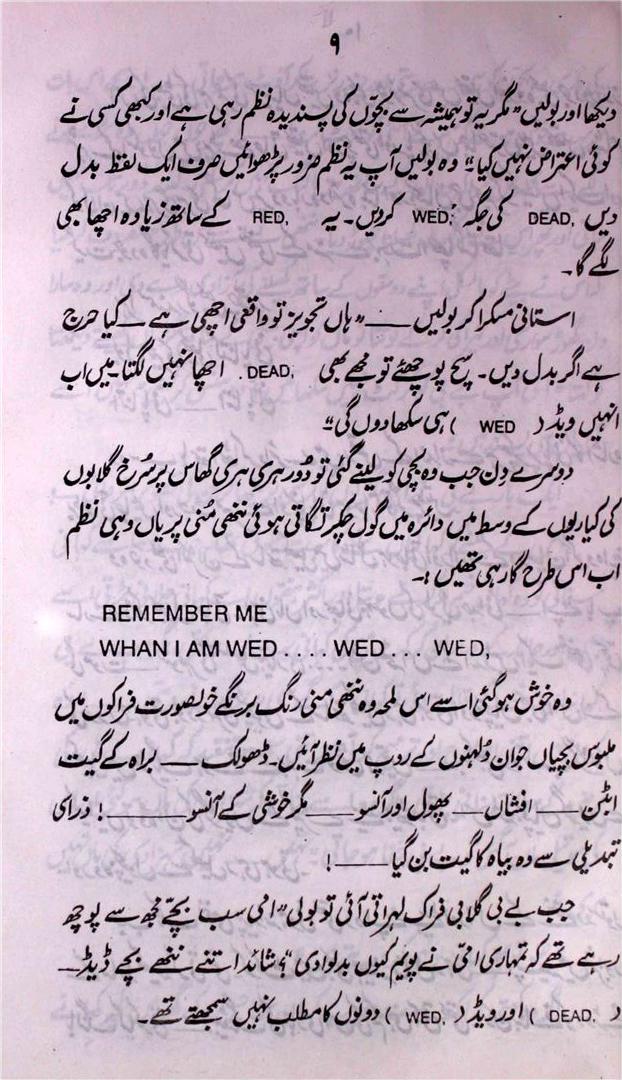 ۹
دیکھا اور بولیں ”مگر یہ تو ہمیشہ سے بچّوں کی پسندیدہ نظم رہی ہے اور کبھی کسی نے
کوئی اعتراض نہیں کیا“ وہ بولیں آپ یہ نظم ضرور پڑھوائیں صرف ایک لفظ بدل
دیں DEAD, کی جگہ WED; کردیں۔ یہ RED, کے ساتھ زیادہ اچھا بھی
لگے گا۔
استانی مسکرا کر بولیں ___ ”ہاں تجویز تو واقعی اچھی ہے ___ کیا حرج
ہے اگر بدل دیں۔ سچ پوچھئے تو مجھے بھی DEAD, اچھا نہیں لگتا۔ میں اب
انہیں ویڈ ( WED ) ہی سکھا دوں گی“
دوسرے دن جب وہ بچی کو لینے گئی تو دُور ہری ہری گھاس پر سُرخ گلابوں
کی کیاریوں کے وسط میں دائرہ میں گول چکر لگاتی ہوئی ننھی مُنی پریاں وہی نظم
اب اس طرح گا رہی تھیں :۔
REMEMBER ME
WHAN I AM WED .... WED ... WED,
وہ خوش ہوگئی اسے اس لمحہ وہ ننھی منی رنگ برنگے خوبصورت فراکوں میں
ملبوس بچیاں جوان دُلہنوں کے روپ میں نظر آئیں۔ ڈھولک ___ براہ کے گیت
ابٹن ___ افشاں ___ پھول اور آنسو ___ مگر خوشی کے آنسو ___! ذرا سی
تبدیلی سے وہ بیاہ کا گیت بن گیا ___!
جب بے بی گلابی فراک لہراتی آئی تو بولی ”امی سب بچّے مجھ سے پوچھ
رہے تھے کہ تمہاری امّی نے پویم کیوں بدلوا دی“؟ شائد اتنے ننھے بچے ڈیڈ __
( DEAD, ) اور ویڈ ( WED, ) دونوں کا مطلب نہیں سمجھتے تھے۔